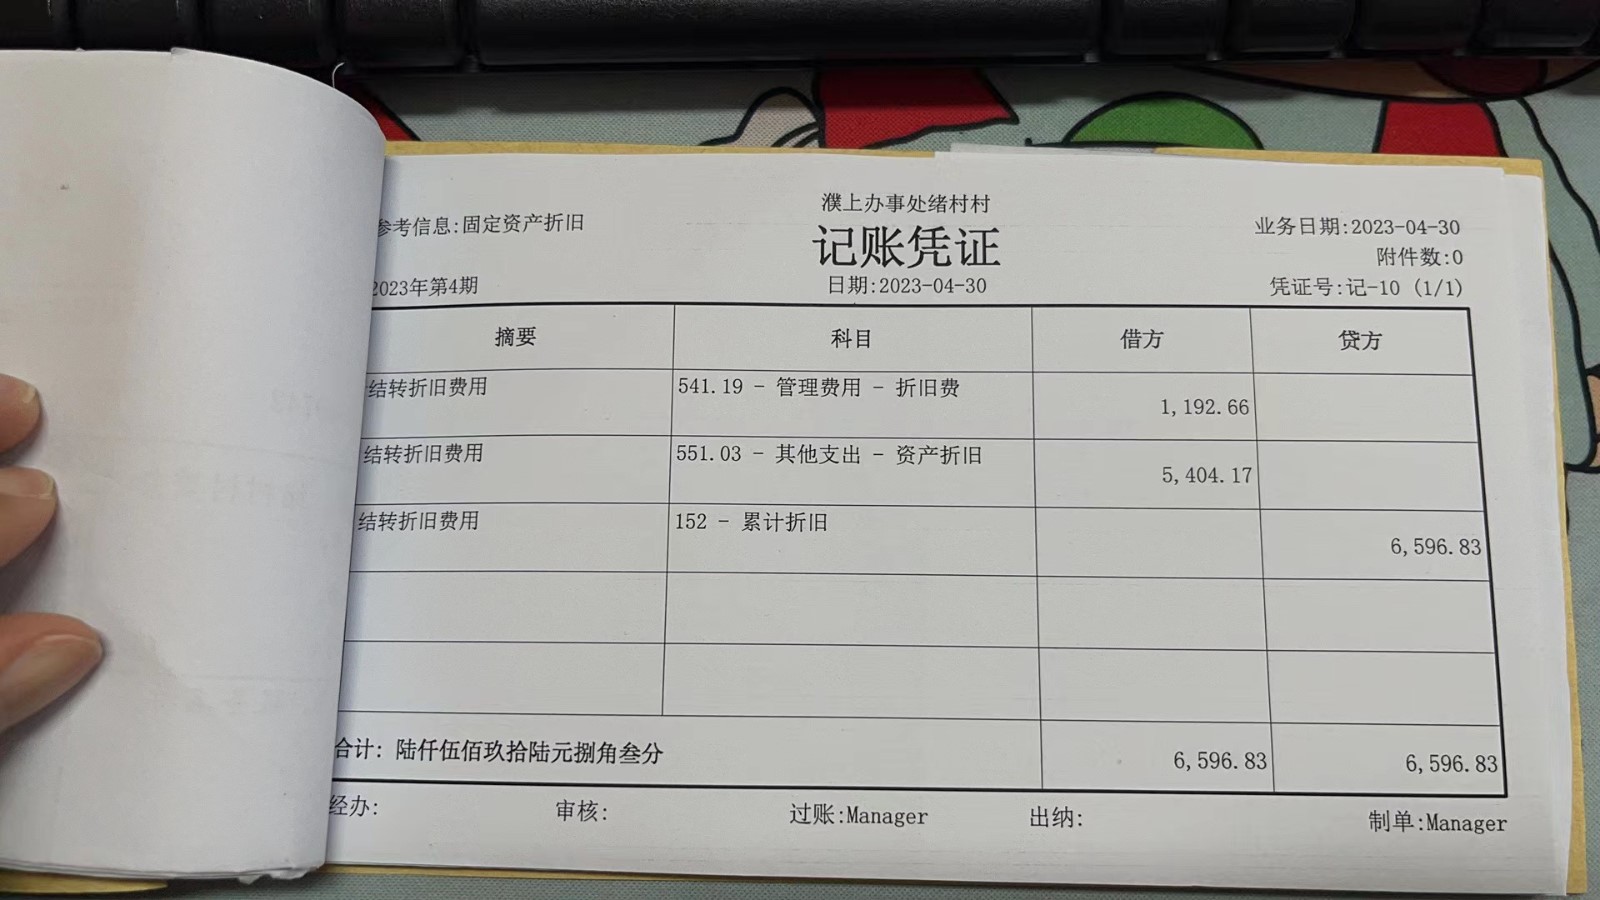 濮上办事处绪村村
参考信息:固定资产折旧
记账凭证
业务日期:2023-04-30
附件数:0
2023年第4期
日期:2023-04-30
凭证号:记-10 (1/1)
摘要 科目 借方 贷方
结转折旧费用 541.19 - 管理费用 - 折旧费 1,192.66
结转折旧费用 551.03 - 其他支出 - 资产折旧 5,404.17
结转折旧费用 152 - 累计折旧 6,596.83
合计: 陆仟伍佰玖拾陆元捌角叁分 6,596.83 6,596.83
经办: 审核: 过账:Manager 出纳: 制单:Manager